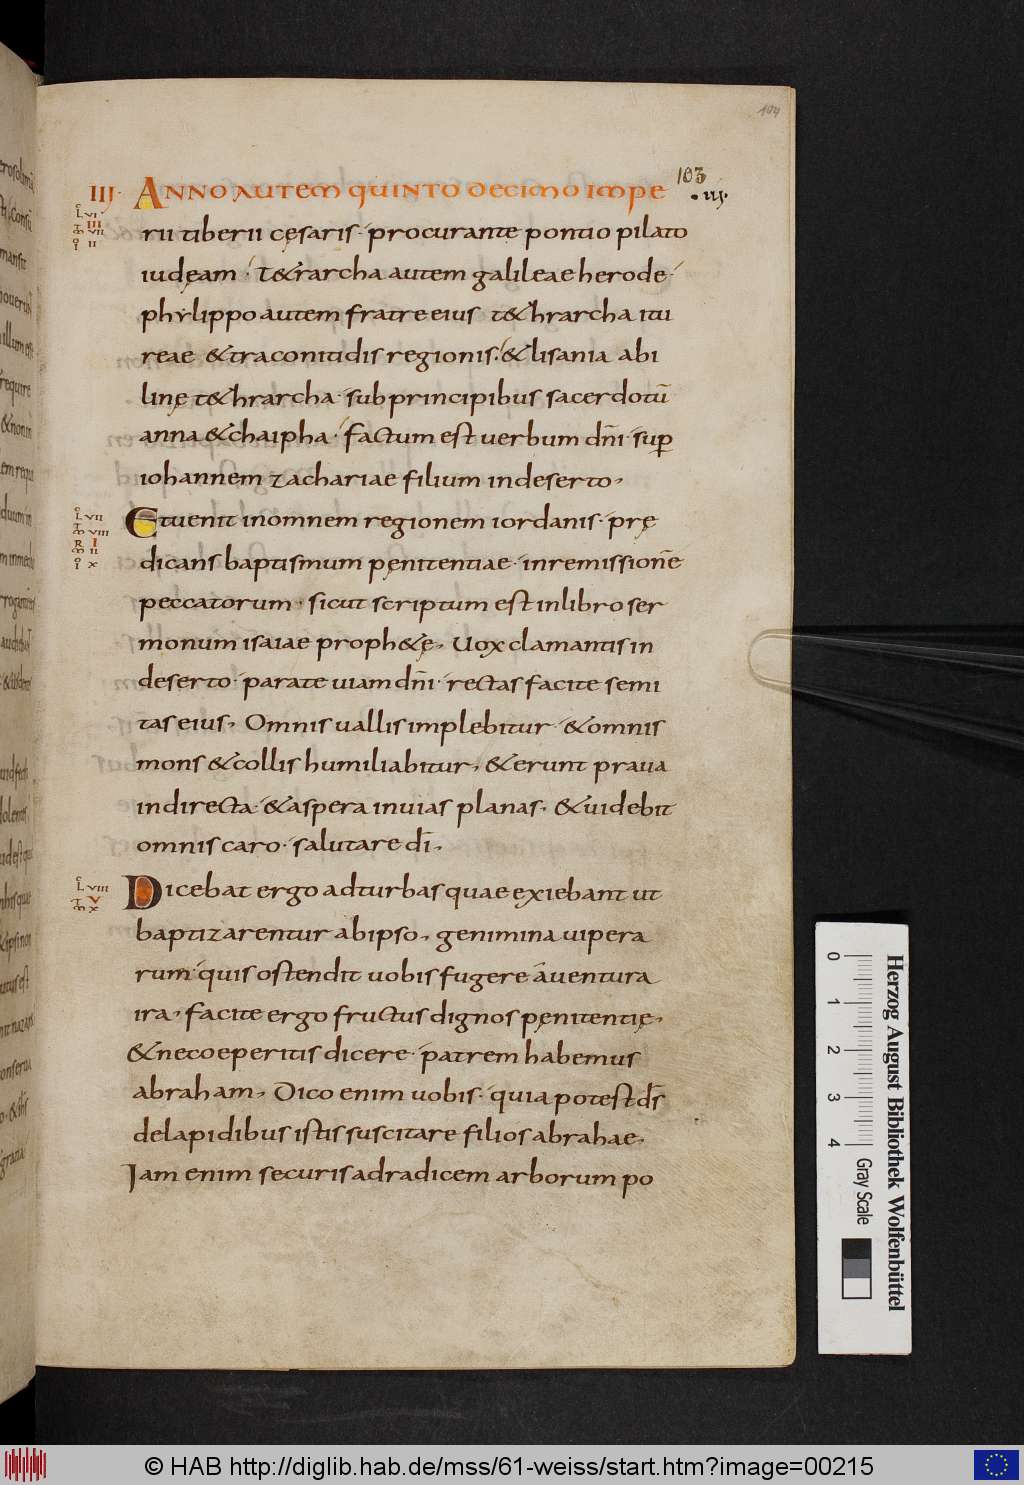 104
103
III· ANNO AUTEM QUINTO DECIMO IMPE
·III·
rii tiberii cęsaris· procurante pontio pilato
iudęam· t&rarcha autem galileae herode·
phylippo autem fratre eius t&hrarcha itu
reae &traconitidis regionis·&lisania abi
linę t&hrarcha· subprincipibus sacerdotū
anna &chaipha· factum est uerbum dn̄i· sup̄
iohannem zachariae filium indeserto,
Etuenit inomnem regionem iordanis· prę
dicans baptismum pęnitentiae· inremissionē
peccatorum· sicut scriptum est inlibro ser
monum isaiae proph&ę, Uox clamantis in
deserto· parate uiam dn̄i· rectas facite semi
tas eius, Omnis uallis implebitur· &omnis
mons &collis humiliabitur, &erunt praua
indirecta· &aspera inuias planas, &uidebit
omnis caro· salutare dī,
Dicebat ergo adturbas quae exiebant ut
baptizarentur abipso, genimina uipera
rum· quis ostendit uobis fugere auentura
ira, facite ergo fructus dignos pęnitentię,
&necoeperitis dicere· patrem habemus
abraham, Dico enim uobis· quia potest ds̄
delapidibus istis suscitare filios abrahae,
Iam enim securis adradicem arborum po
0 1 2 3 4
Gray Scale
Herzog August Bibliothek Wolfenbüttel
© HAB http://diglib.hab.de/mss/61-weiss/start.htm?image=00215